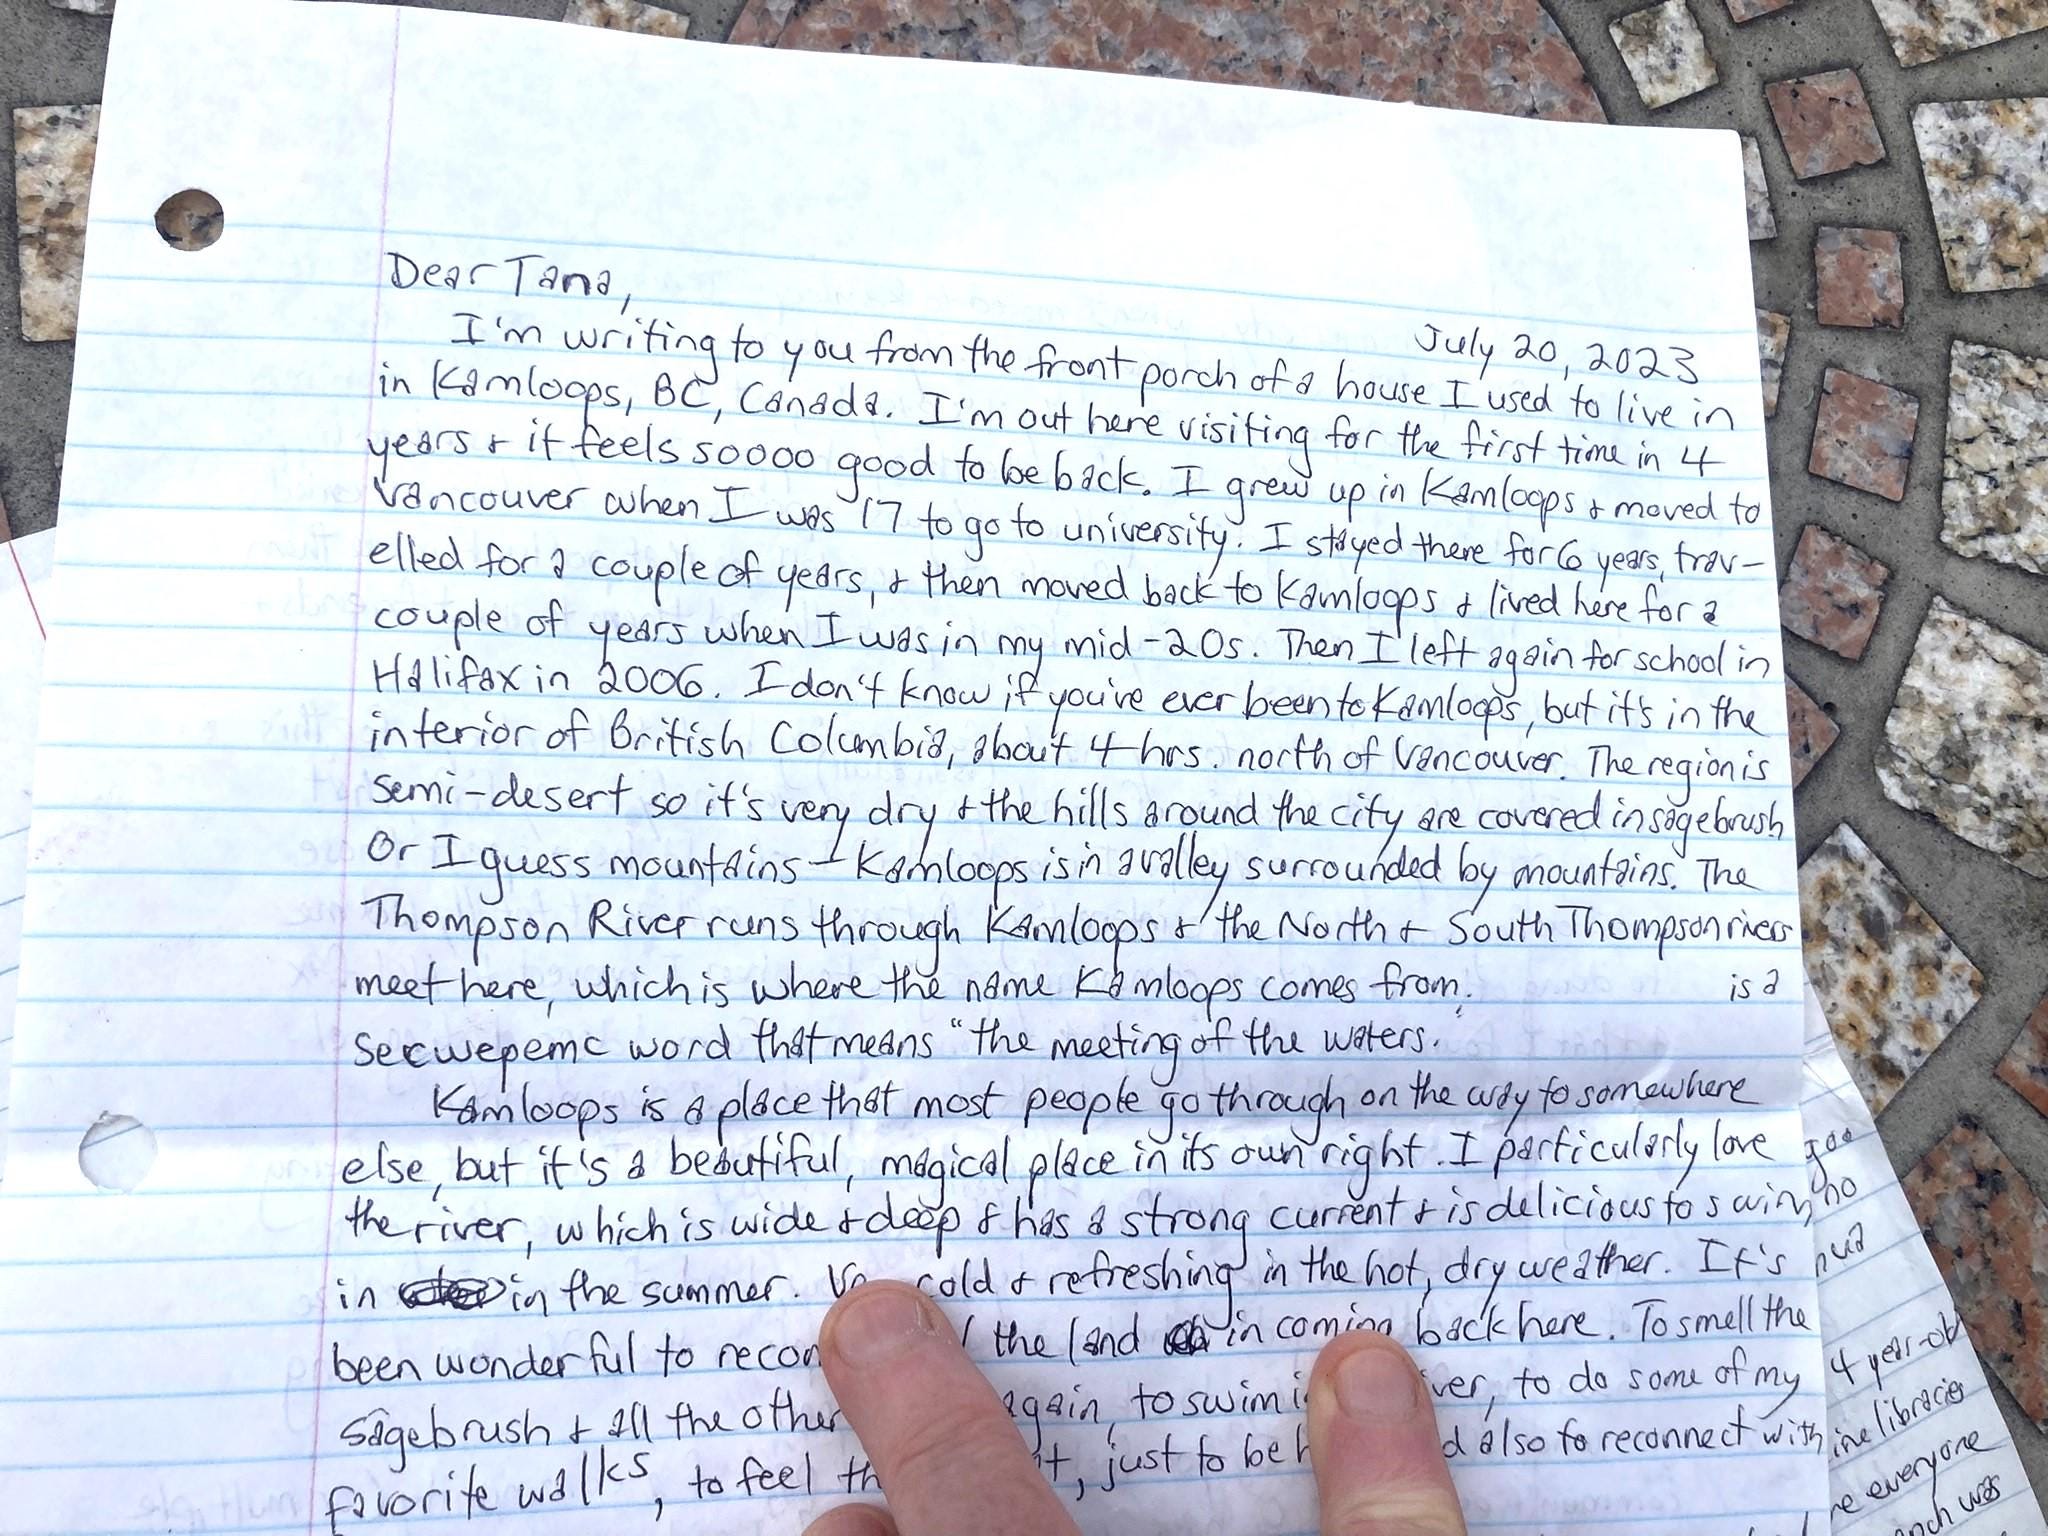 Dear Tana,
July 20, 2023
I'm writing to you from the front porch of a house I used to live in
in Kamloops, BC, Canada. I'm out here visiting for the first time in 4
years & it feels soooo good to be back. I grew up in Kamloops & moved to
Vancouver when I was 17 to go to university. I stayed there for 6 years, trav-
elled for a couple of years, & then moved back to Kamloops & lived here for a
couple of years when I was in my mid-20s. Then I left again for school in
Halifax in 2006. I don't know if you've ever been to Kamloops, but it's in the
interior of British Columbia, about 4 hrs. north of Vancouver. The region is
semi-desert so it's very dry & the hills around the city are covered in sagebrush
Or I guess mountains - Kamloops is in a valley surrounded by mountains. The
Thompson River runs through Kamloops & the North & South Thompson rivers
meet here, which is where the name Kamloops comes from. is a
Secwepemc word that means "the meeting of the waters.
Kamloops is a place that most people go through on the way to somewhere
else, but it's a beautiful, magical place in its own right. I particularly love
the river, which is wide & deep & has a strong current & is delicious to swim
in in the summer. cold & refreshing in the hot, dry weather. It's
been wonderful to the land in coming back here. To smell the
sagebrush & all the other again, to swim to do some of my
favorite walks, to feel just to be also to reconnect with
no
4 year-old
libraries
everyone
was